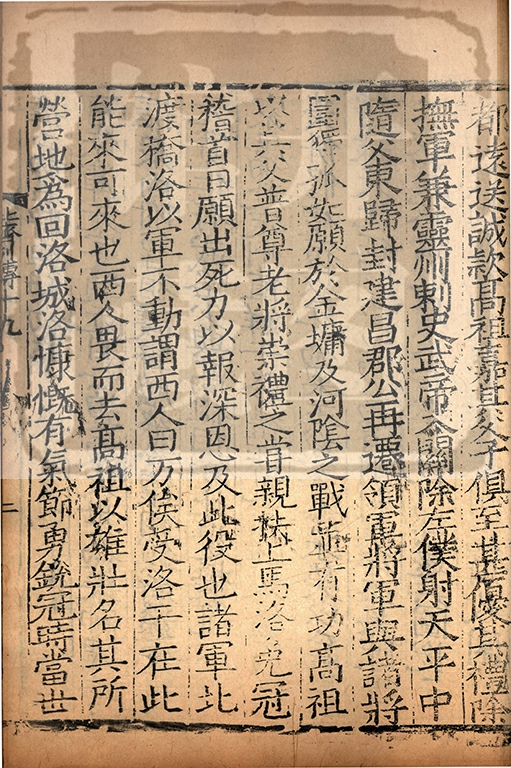 都遠送誠款高祖嘉其父子俱至甚優其禮除
撫軍兼靈州刺史武帝入關除左僕射天平中
隨父東歸封建昌郡公再遷領軍將軍與諸將
圍獨孤如願於金墉及河陰之戰並有功高祖
以其父普尊老將崇禮之嘗親扶上馬洛免冠
稽首曰願出死力以報深恩及此役也諸軍北
渡橋洛以軍不動謂西人曰万俟受洛干在此
能來可來也西人畏而去高祖以雄壯名其所
營地為回洛城洛慷慨有氣節勇銳冠時當世
傳十九
二